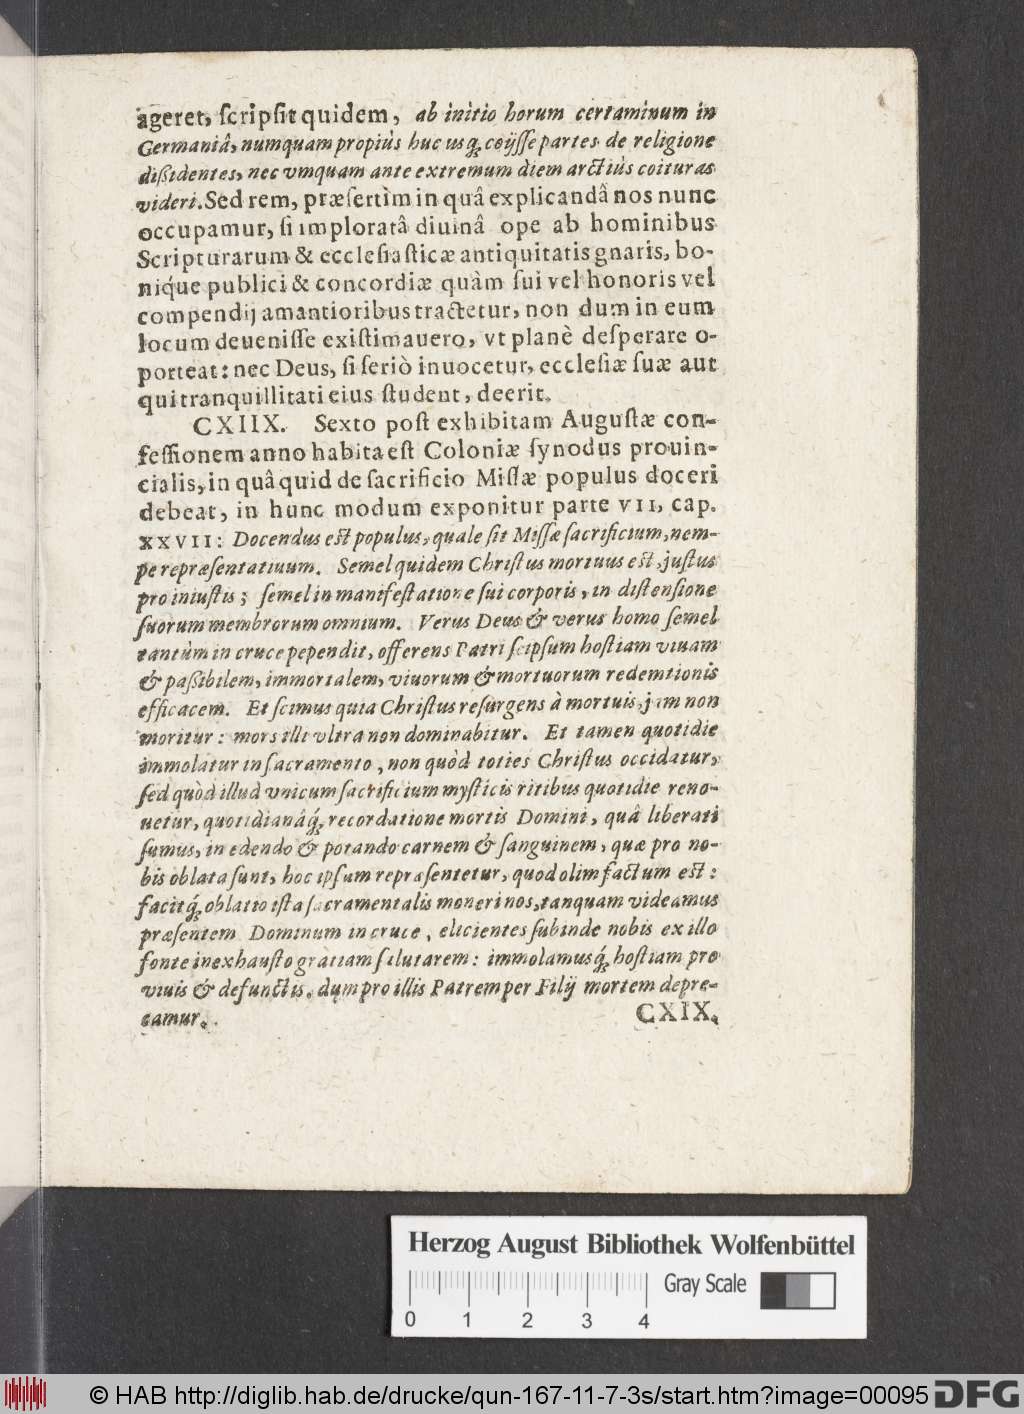 ageret, ſcripſit quidem, ab initio horum certaminum in
Germaniâ, numquam propiùs huc uſq́; coijſſe partes de religione
dißidentes, nec vmquam ante extremum diem arctiùs coituras
videri. Sed rem, præſertìm in quâ explicandâ nos nunc
occupamur, ſi imploratâ diuinâ ope ab hominibus
Scripturarum & eccleſiaſticæ antiquitatis gnaris, bo-
niq́ue publici & concordiæ quàm ſui vel honoris vel
compendij amantioribus tractetur, non dum in eum
locum deueniſſe exiſtimauero, vt planè deſperare o-
porteat: nec Deus, ſi ſeriò inuocetur, eccleſiæ ſuæ aut
qui tranquillitati eius ſtudent, deerit.
CXIIX. Sexto poſt exhibitam Auguſtæ con-
feſſionem anno habita eſt Coloniæ ſynodus prouin-
cialis, in quâ quid de ſacrificio Miſſæ populus doceri
debeat, in hunc modum exponitur parte VII, cap.
XXVII: Docendus eſt populus, quale ſit Miſſæ ſacrificium, nem-
pe repræſentatiuum. Semel quidem Chriſtus mortuus eſt, juſtus
pro iniuſtis; ſemel in manifeſtatione ſui corporis, in diſtenſione
ſuorum membrorum omnium. Verus Deus & verus homo ſemel
tantùm in cruce pependit, offerens Patri ſeipſum hoſtiam viuam
& paßibilem, immortalem, viuorum & mortuorum redemtionis
efficacem. Et ſcimus quia Chriſtus reſurgens à mortuis, jam non
moritur: mors illi vltra non dominabitur. Et tamen quotidie
immolatur in ſacramento, non quòd toties Chriſtus occidatur,
ſed quòd illud vnicum ſacrificium myſticis ritibus quotidie reno-
uetur, quotidianâq́; recordatione mortis Domini, quâ liberati
ſumus, in edendo & potando carnem & ſanguinem, quæ pro no-
bis oblata ſunt, hoc ipſum repræſentetur, quod olim factum eſt:
facitq́; oblatio iſta ſacramentalis moneri nos, tanquam videamus
præſentem Dominum in cruce, elicientes ſubinde nobis ex illo
fonte inexhauſto gratiam ſalutarem: immolamusq́; hoſtiam pro
viuis & defunctis, dum pro illis Patrem per Filij mortem depre-
camur.
CXIX.
Herzog August Bibliothek Wolfenbüttel
Gray Scale
0 1 2 3 4
© HAB http://diglib.hab.de/drucke/qun-167-11-7-3s/start.htm?image=00095 DFG